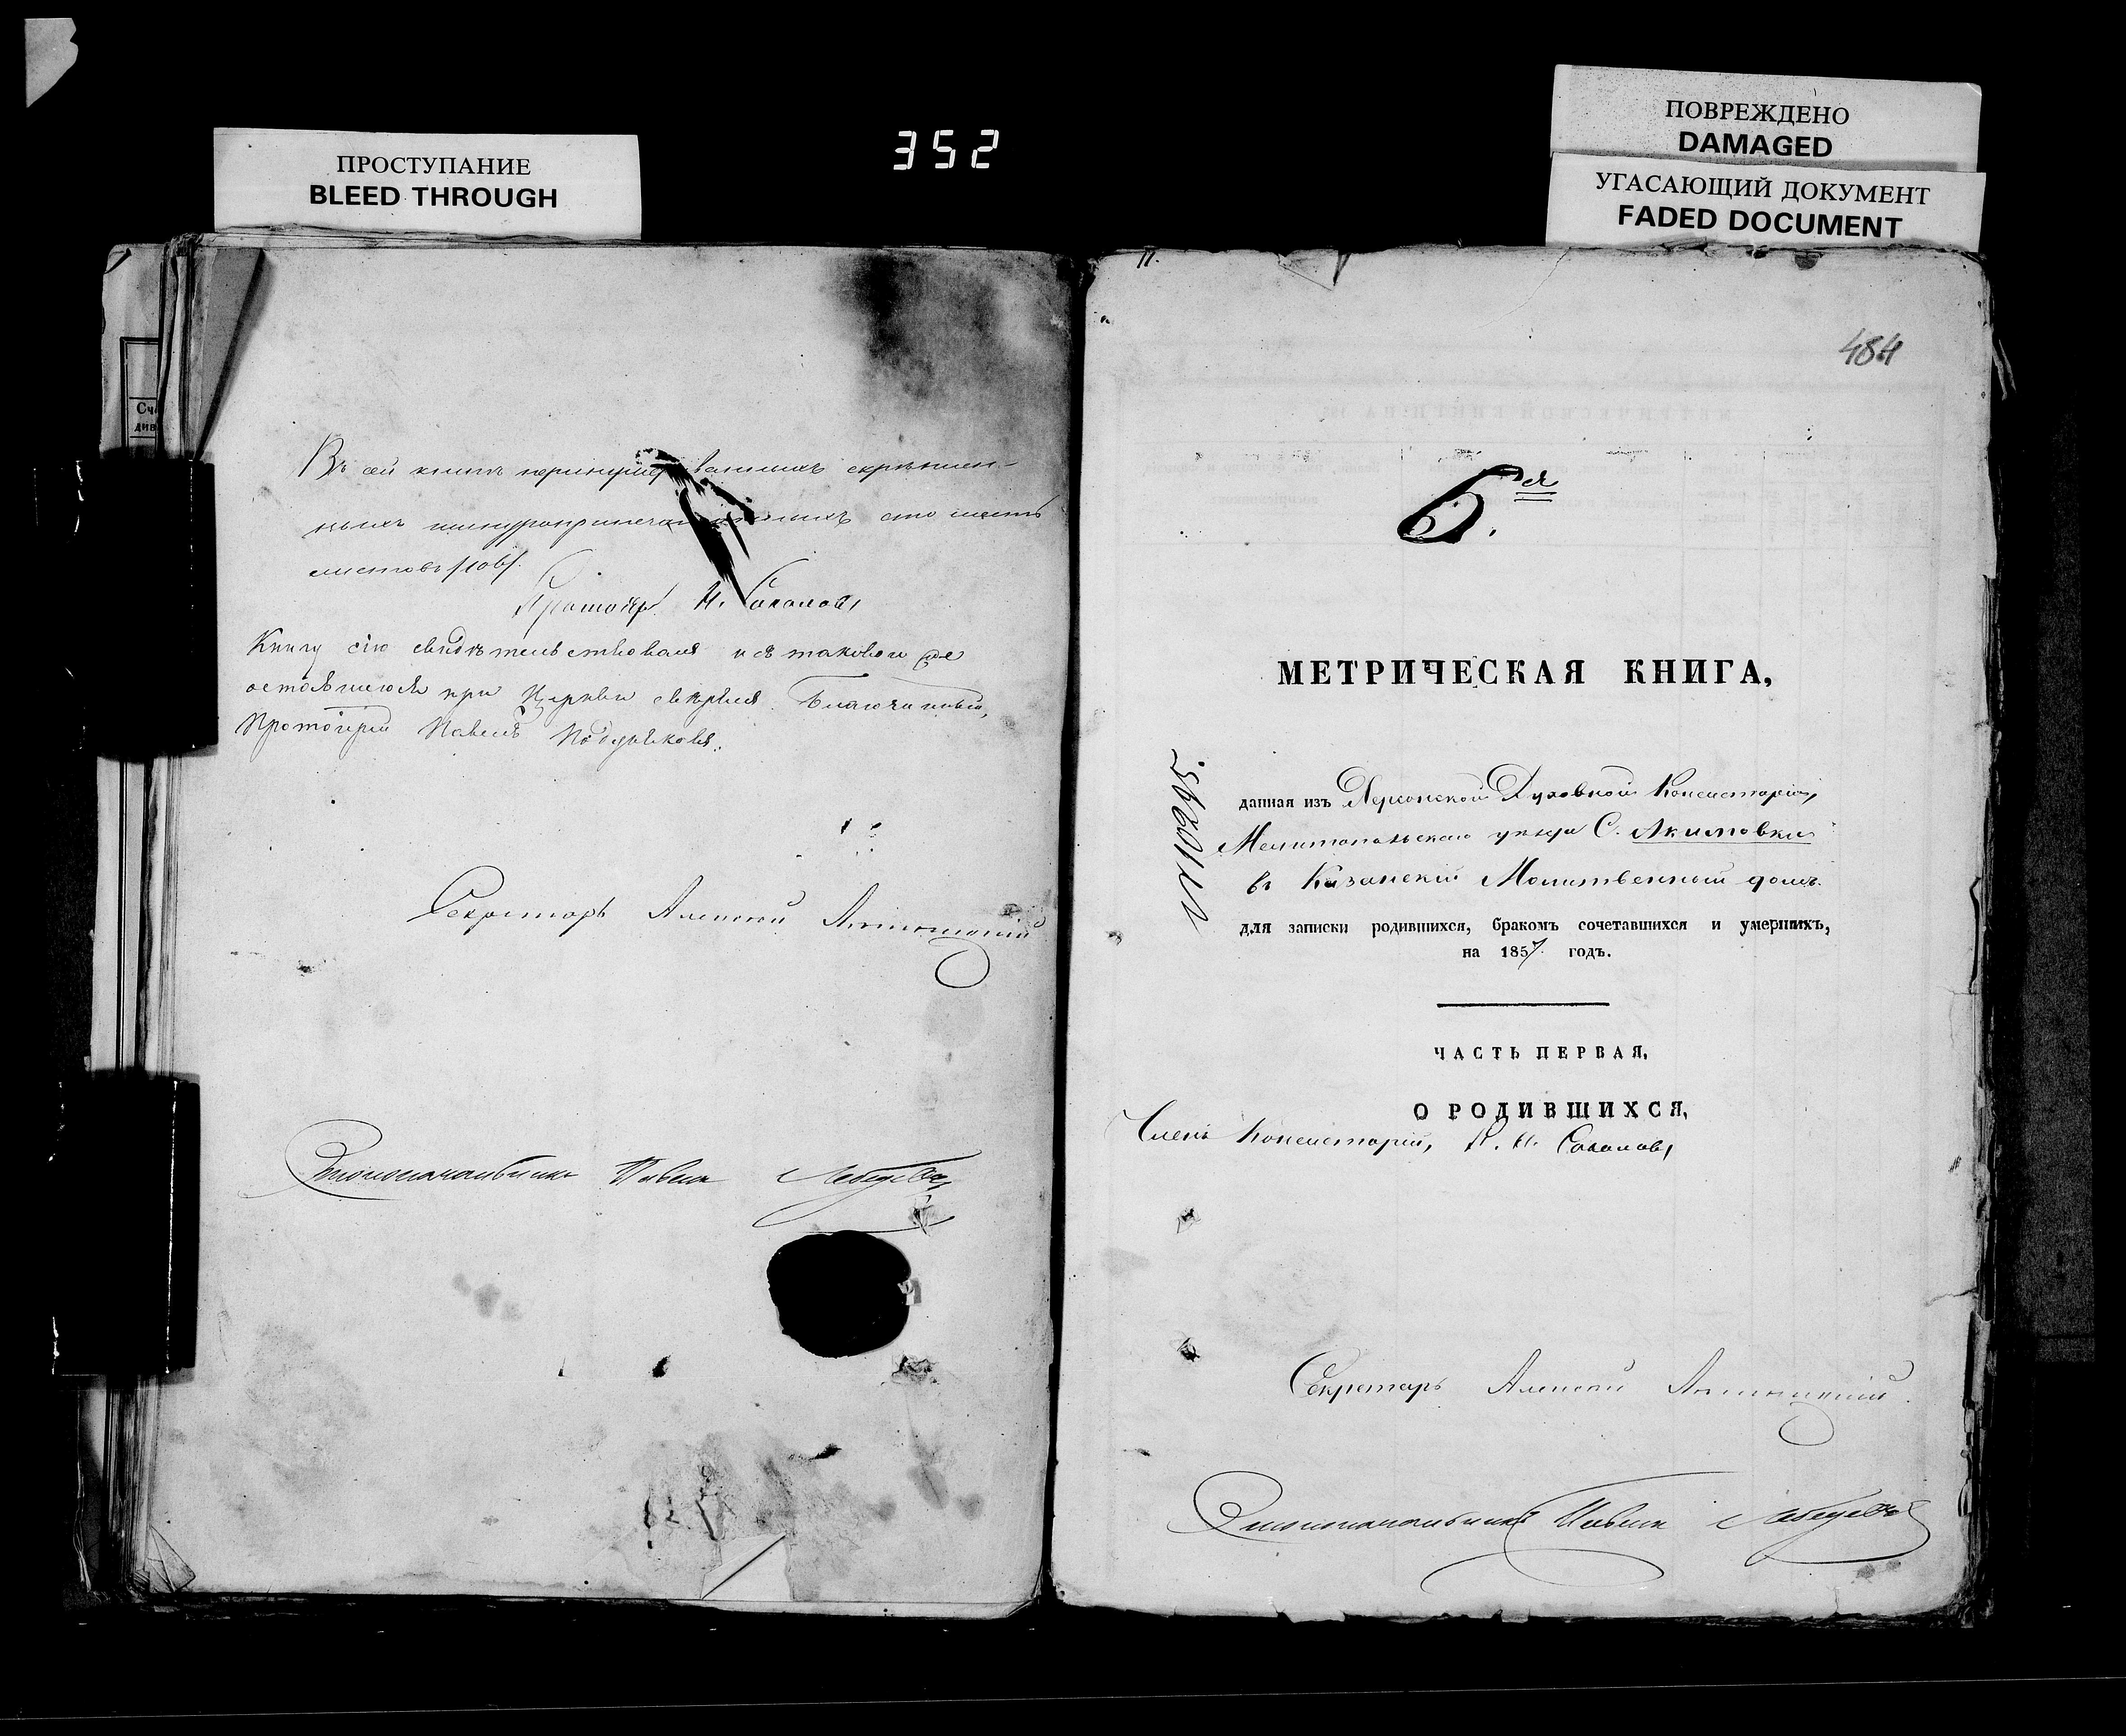 ПРОСТУПАНИЕ
BLEED THROUGH
352
ПОВРЕЖДЕНО
DAMAGED
УГАСАЮЩИЙ ДОКУМЕНТ
FADED DOCUMENT
Въ сей книгѣ скрѣплен-
ныхъ сто шесть
листовъ /106/.
Протоіер. Н. Соколовъ
Книгу сію свидѣтельствовалъ и съ таковою же
оставшеюся при Церкви свѣрялъ Благочинный,
Протоіерей Павелъ
Секретарь Алексѣй
Столоначальникъ Павелъ Лебедевъ
484
5.ая
МЕТРИЧЕСКАЯ КНИГА,
№ 10295.
данная изъ Херсонской Духовной Консисторіи,
Мелитопольскаго уѣзда С. Акимовки
въ Казанскій Молитвенный домъ.
для записки родившихся, бракомъ сочетавшихся и умершихъ,
на 1857 годъ.
ЧАСТЬ ПЕРВАЯ,
О РОДИВШИХСЯ,
Членъ Консисторіи, П. Н. Соколовъ
Секретарь Алексѣй
Столоначальникъ Павелъ Лебедевъ